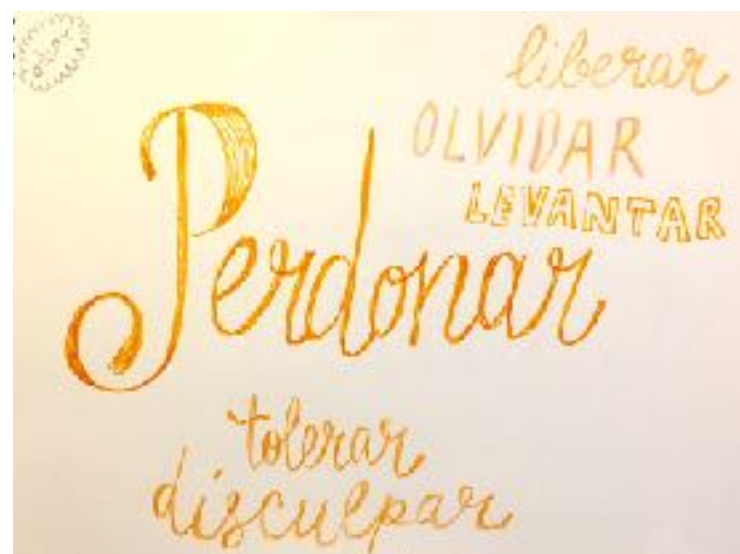 liberar
OLVIDAR
LEVANTAR
Perdonar
tolerar
disculpar